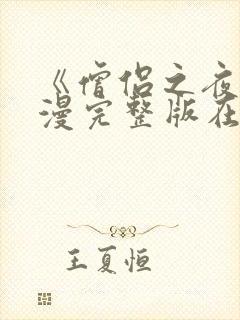 《僧侣之夜
漫完整版在
王夏恒